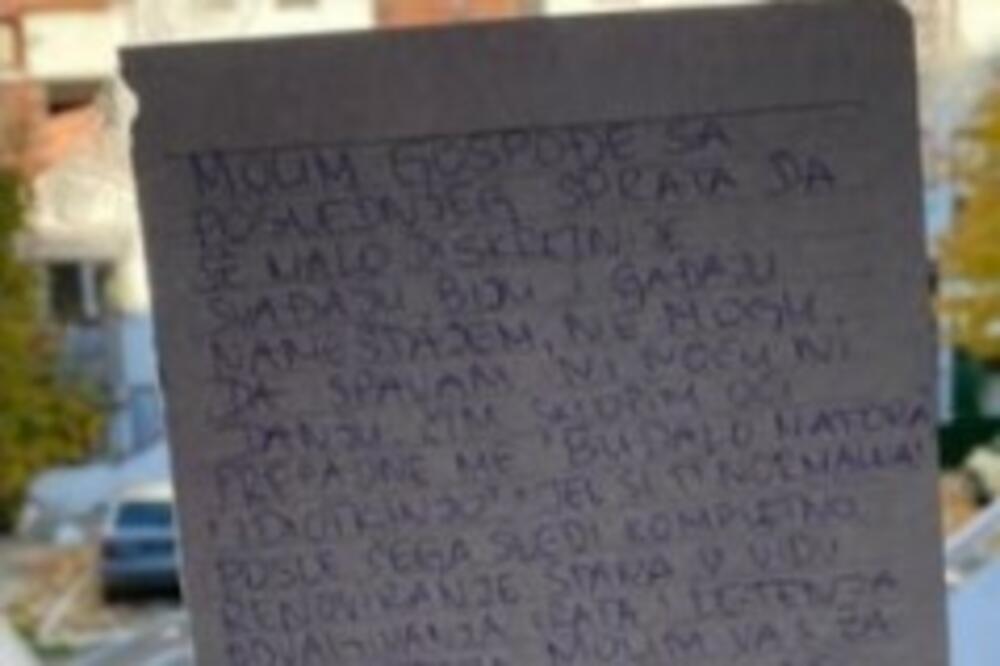 MOLIM GOSPOĐE SA
POSLEDNJEG SPRATA DA
SE MALO DISKRETNIJE
SVAĐAJU, BIJU I GAĐAJU
NAMEŠTAJEM, NE MOGU
DA SPAVAM NI NOĆU NI
DANJU. ČIM SKLOPIM OČI
PREPADNE ME "BUDALO MATORA"
"IDIOTKINJO" "JEL SI TI NORMALNA"
POSLE ČEGA SLEDI KOMPLETNO
RENOVIRANJE STANA U VIDU
RAZVALJIVANJA VRATA I
MOLIM VAS ZA